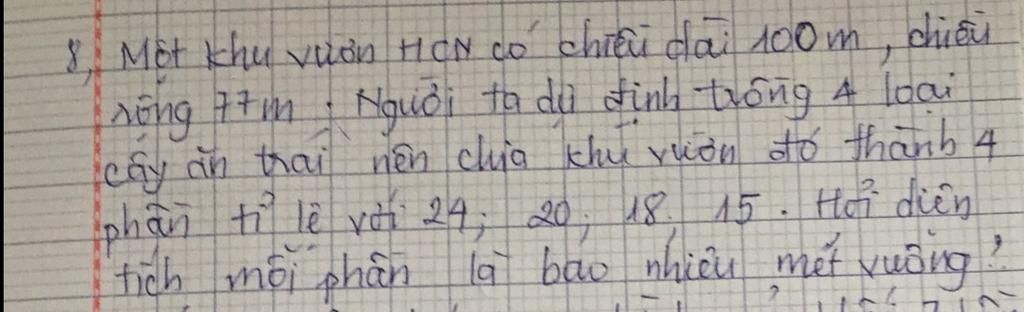 8, Một khu vườn HCN có chiều dài 100m, chiều
rộng 77m. Người ta dự định trồng 4 loại
cây ăn trái nên chia khu vườn đó thành 4
phần tỉ lệ với 24; 20; 18; 15. Hỏi diện
tích mỗi phần là bao nhiêu mét vuông?